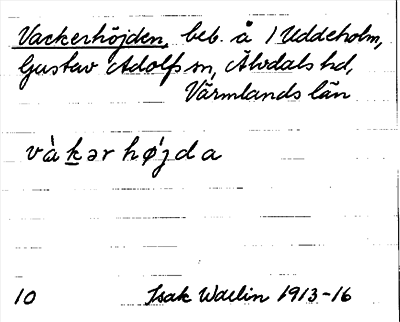 Vackerhöjden, beb. å 1 Uddeholm,
Gustav Adolfs sn, Älvdals hd,
Värmlands län
và kər hǿjda
10 Isak Waelin 1913-16